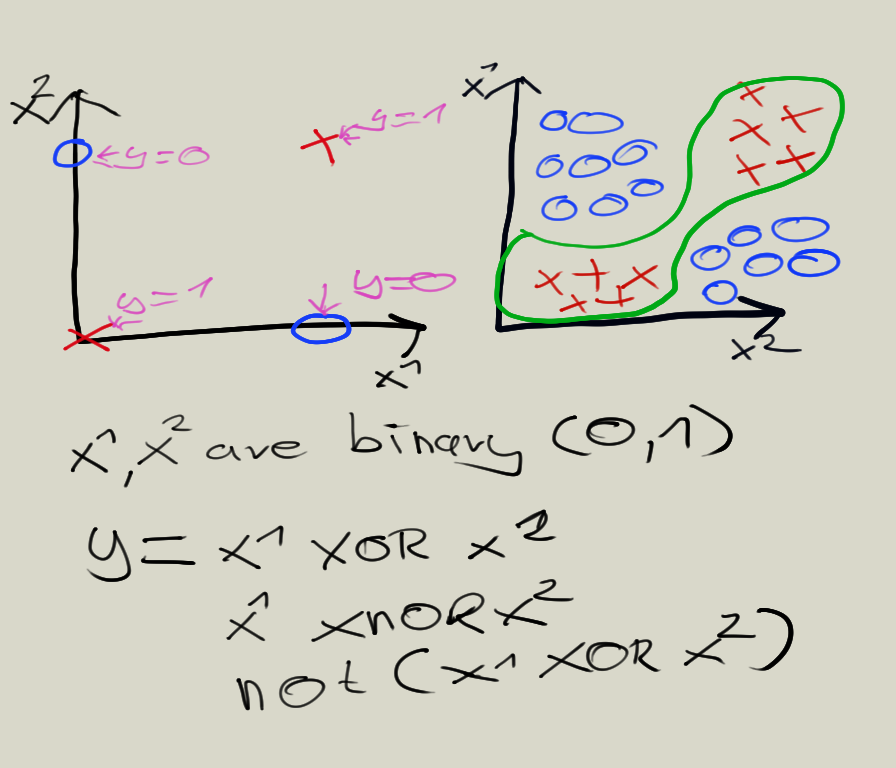 x²
y=0
y=1
y=1
y=0
x¹
x¹
x²
x¹, x² are binary (0,1)
y = x¹ XOR x²
x¹ xnOR x²
not (x¹ XOR x²)